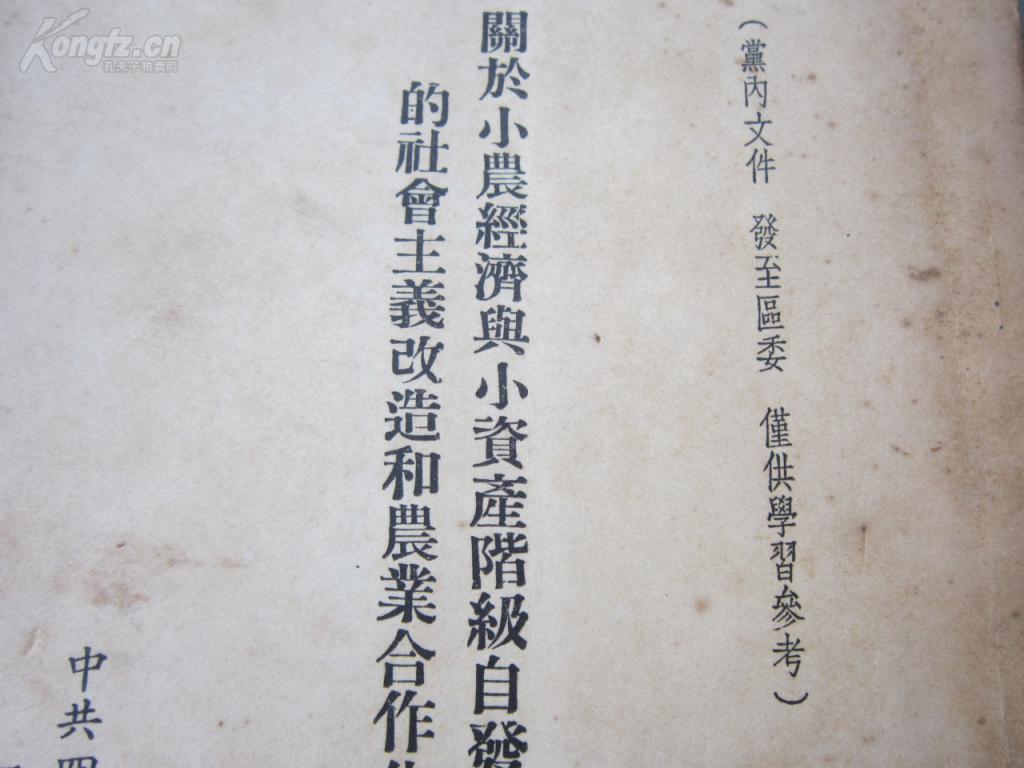 （黨內文件　發至區委　僅供學習參考）
關於小農經濟與小資產階級自發
的社會主義改造和農業合作
中共四
Kongfz.cn
孔夫子拍卖网